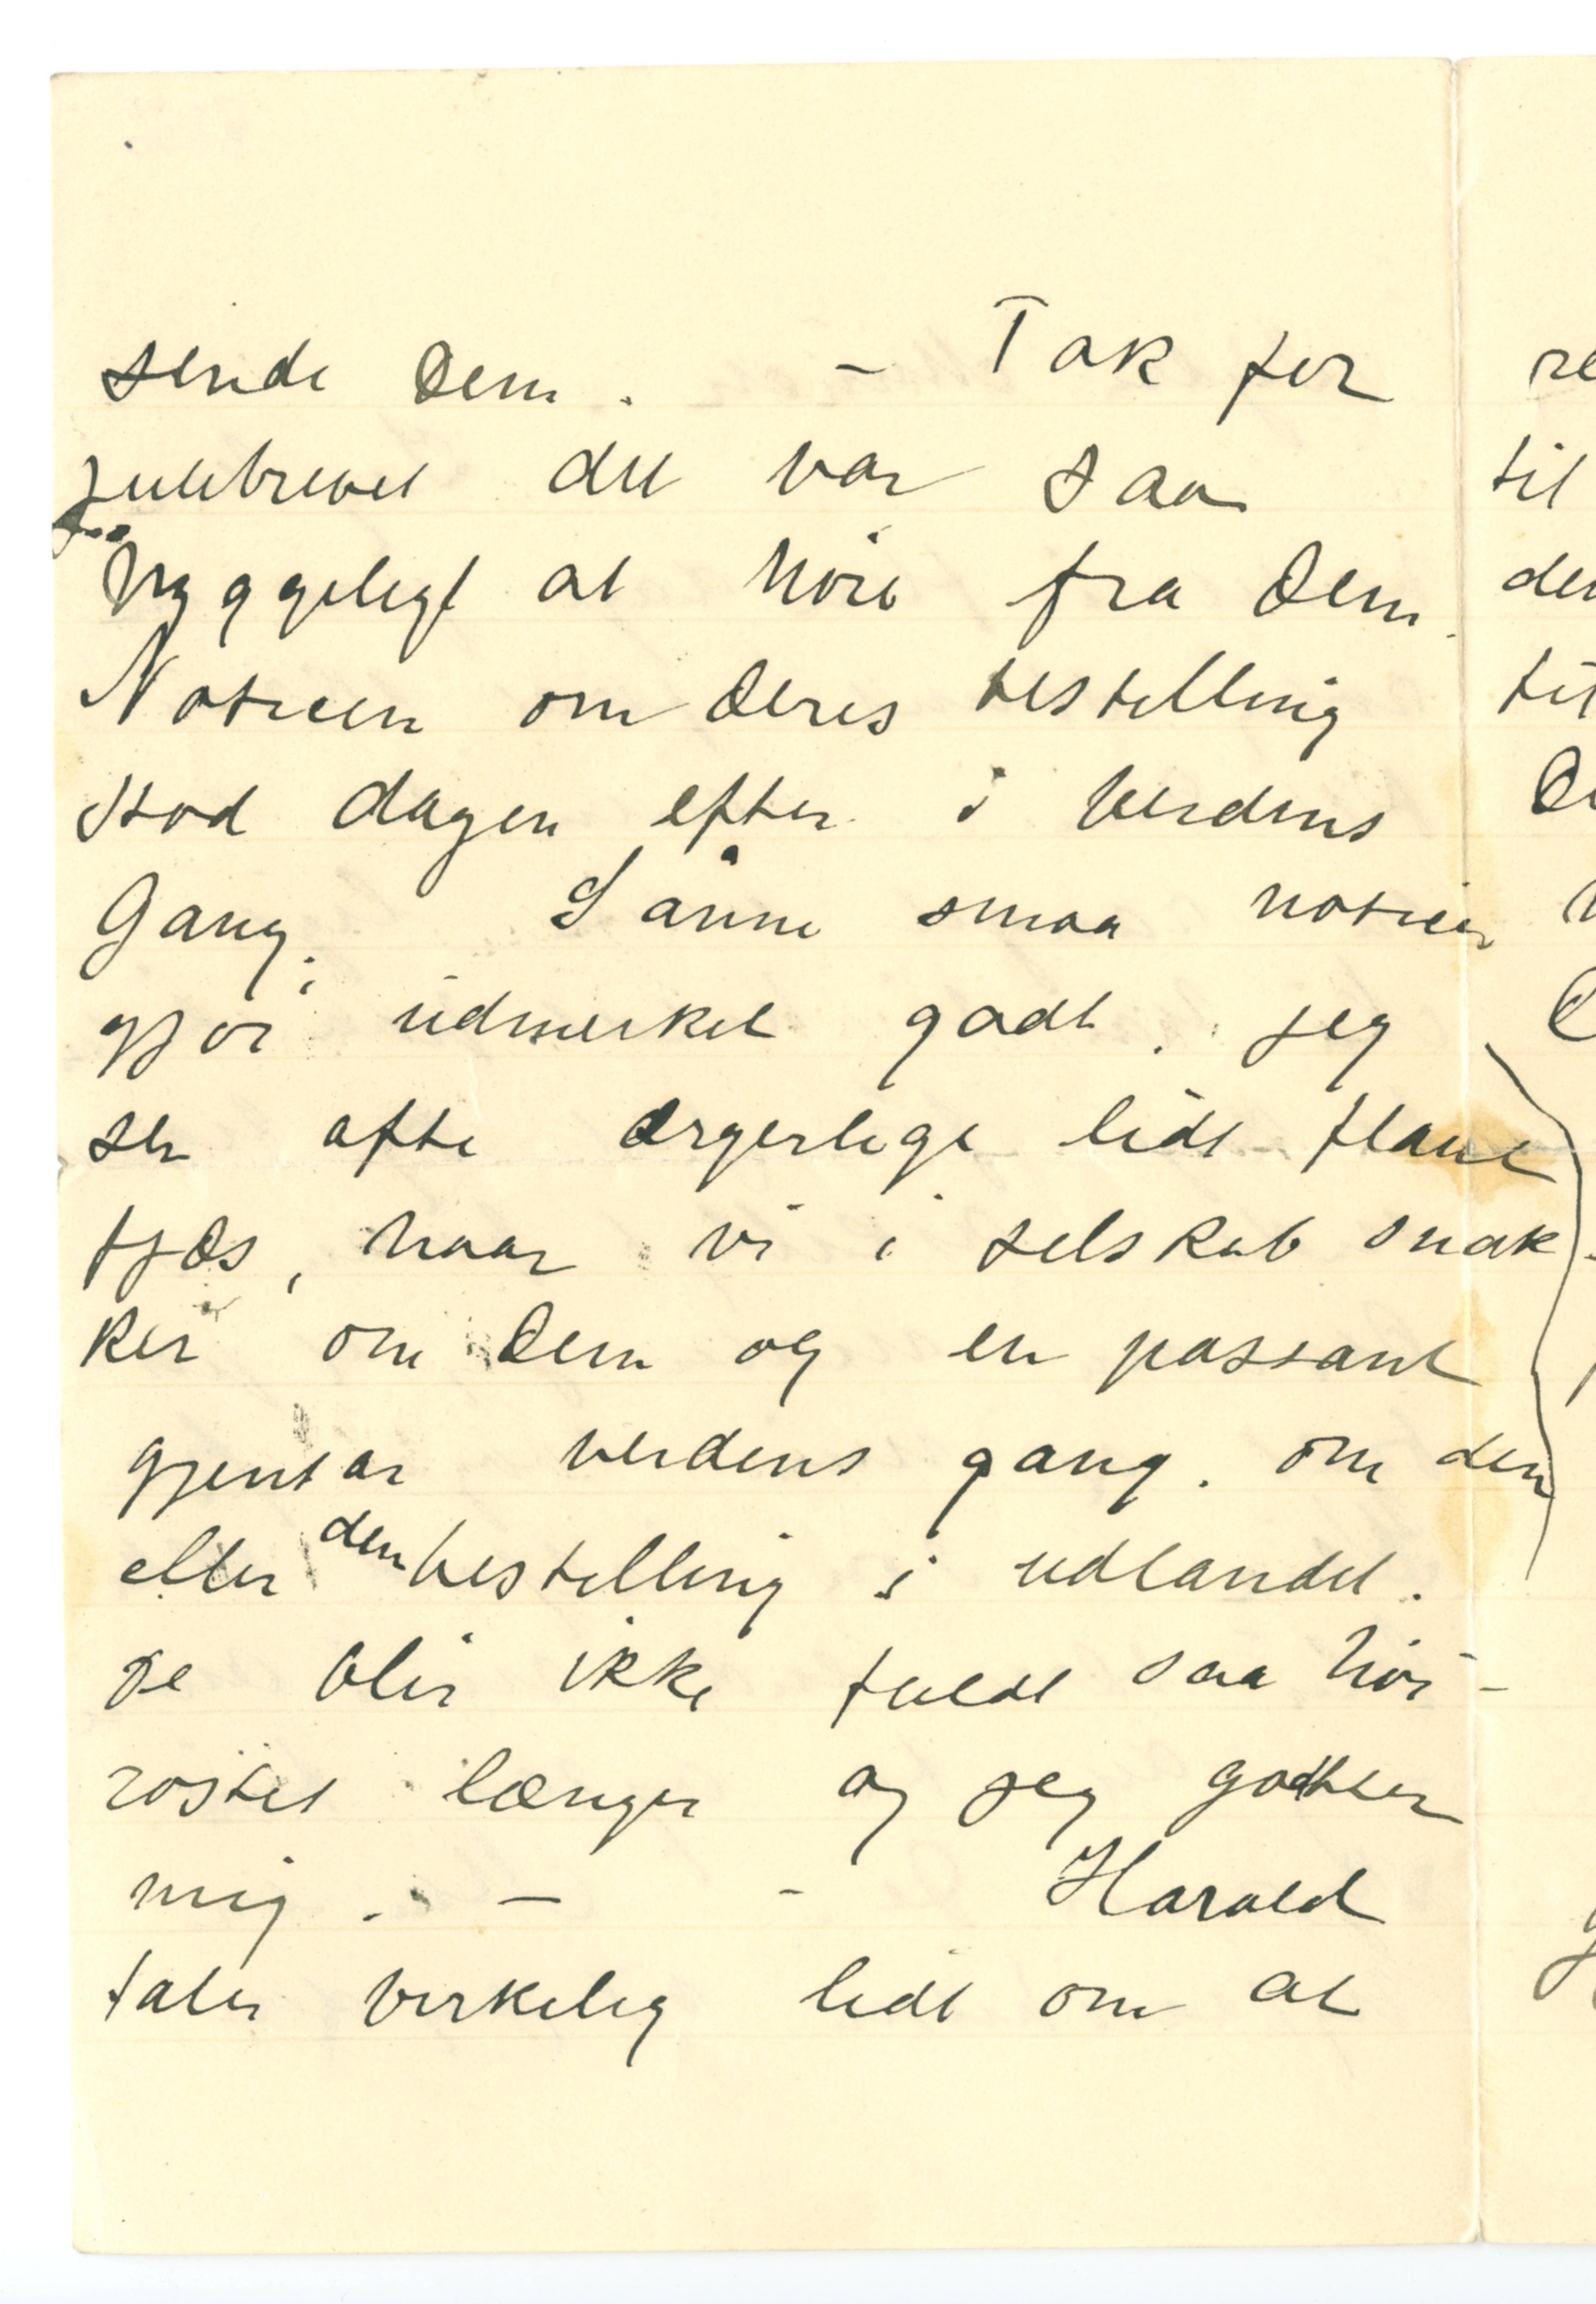 sende Dem. – Tak for
julebrevet det var saa
hyggeligt at höre fra Dem.
Noticen om Deres bestilling
stod dagen efter i Verdens
Gang. Sånne smaa noticer
gjör udmerket godt. jeg
ser ofte ærgerlige lidt flaue
fjæs, naar vi i selskab snak-
ker om Dem og en passant
gjentar verdens gang. om den
eller den bestilling i udlandet.
De blir ikke fuldt saa höi-
röstet længer og jeg godter
mig. – – Harald
taler virkelig lidt om at
re
til
den
Gang